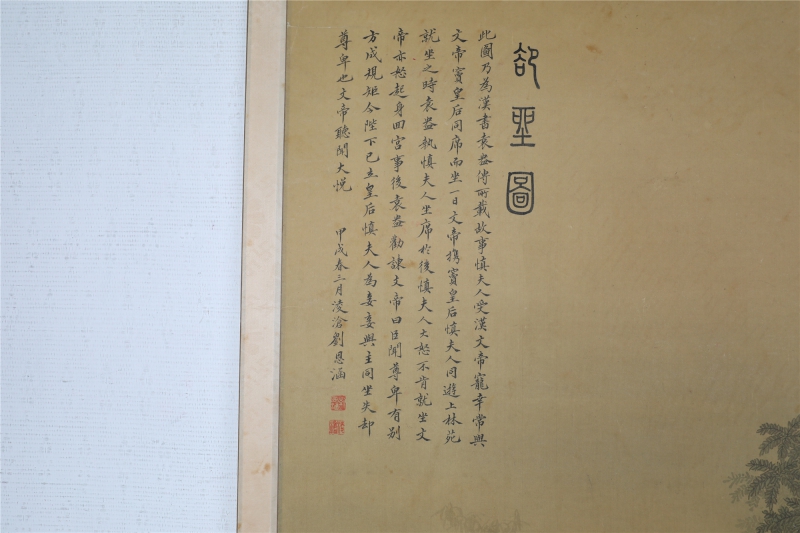 却坐圖
此圖乃為漢書袁盎傳所載故事慎夫人受漢文帝寵幸常與
文帝竇皇后同席而坐一日文帝攜竇皇后慎夫人同遊上林苑
就坐之時袁盎執慎夫人坐席於後慎夫人大怒不肯就坐文
帝亦怒起身回宮事後袁盎勸諫文帝曰臣聞尊卑有別
方成規矩今陛下已立皇后慎夫人為妾妾與主同坐失却
尊卑也文帝聽聞大悅
甲戌春三月凌滄劉恩涵